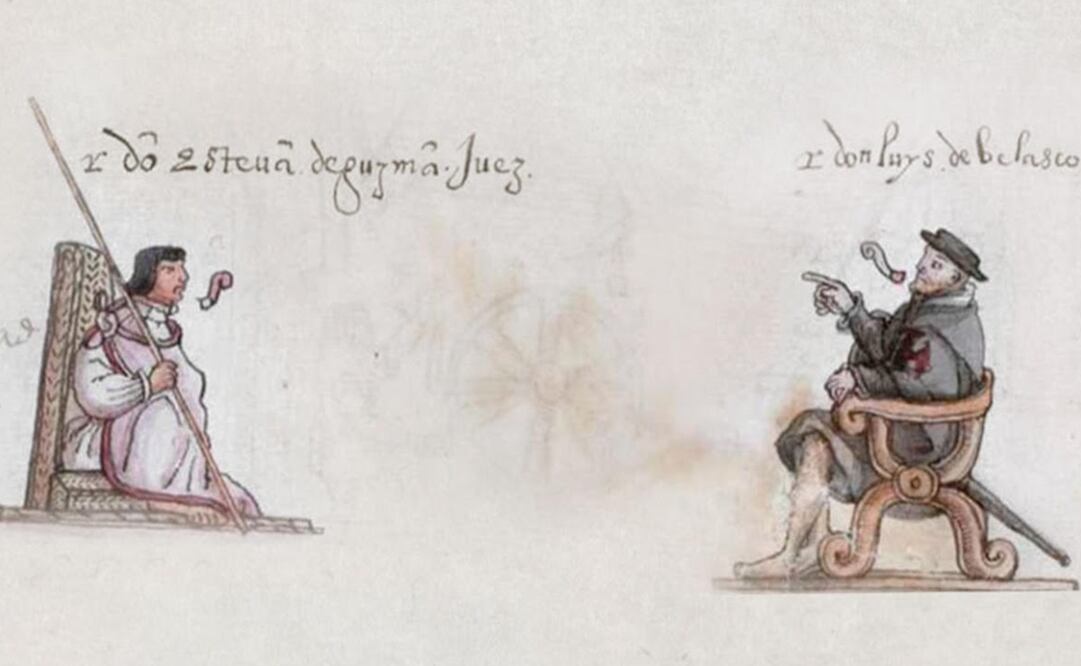 r dõ Esteuã. deguzmã. Juez.
r don luys. de belasco